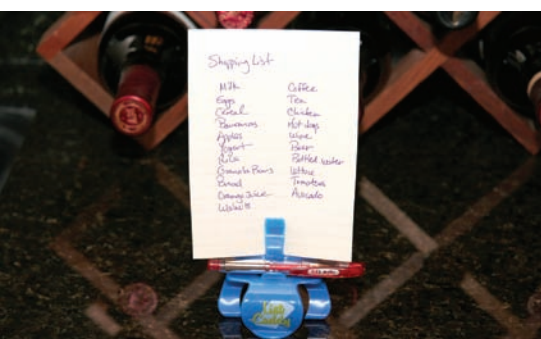 Shopping List
Milk
Eggs
Cereal
Bananas
Apples
Yogurt
Rice
Granola Bars
Bread
Orange Juice
Walnuts
Coffee
Tea
Chicken
Hot dogs
Wine
Beer
Bottled water
Lettuce
Tomatoes
Avocado